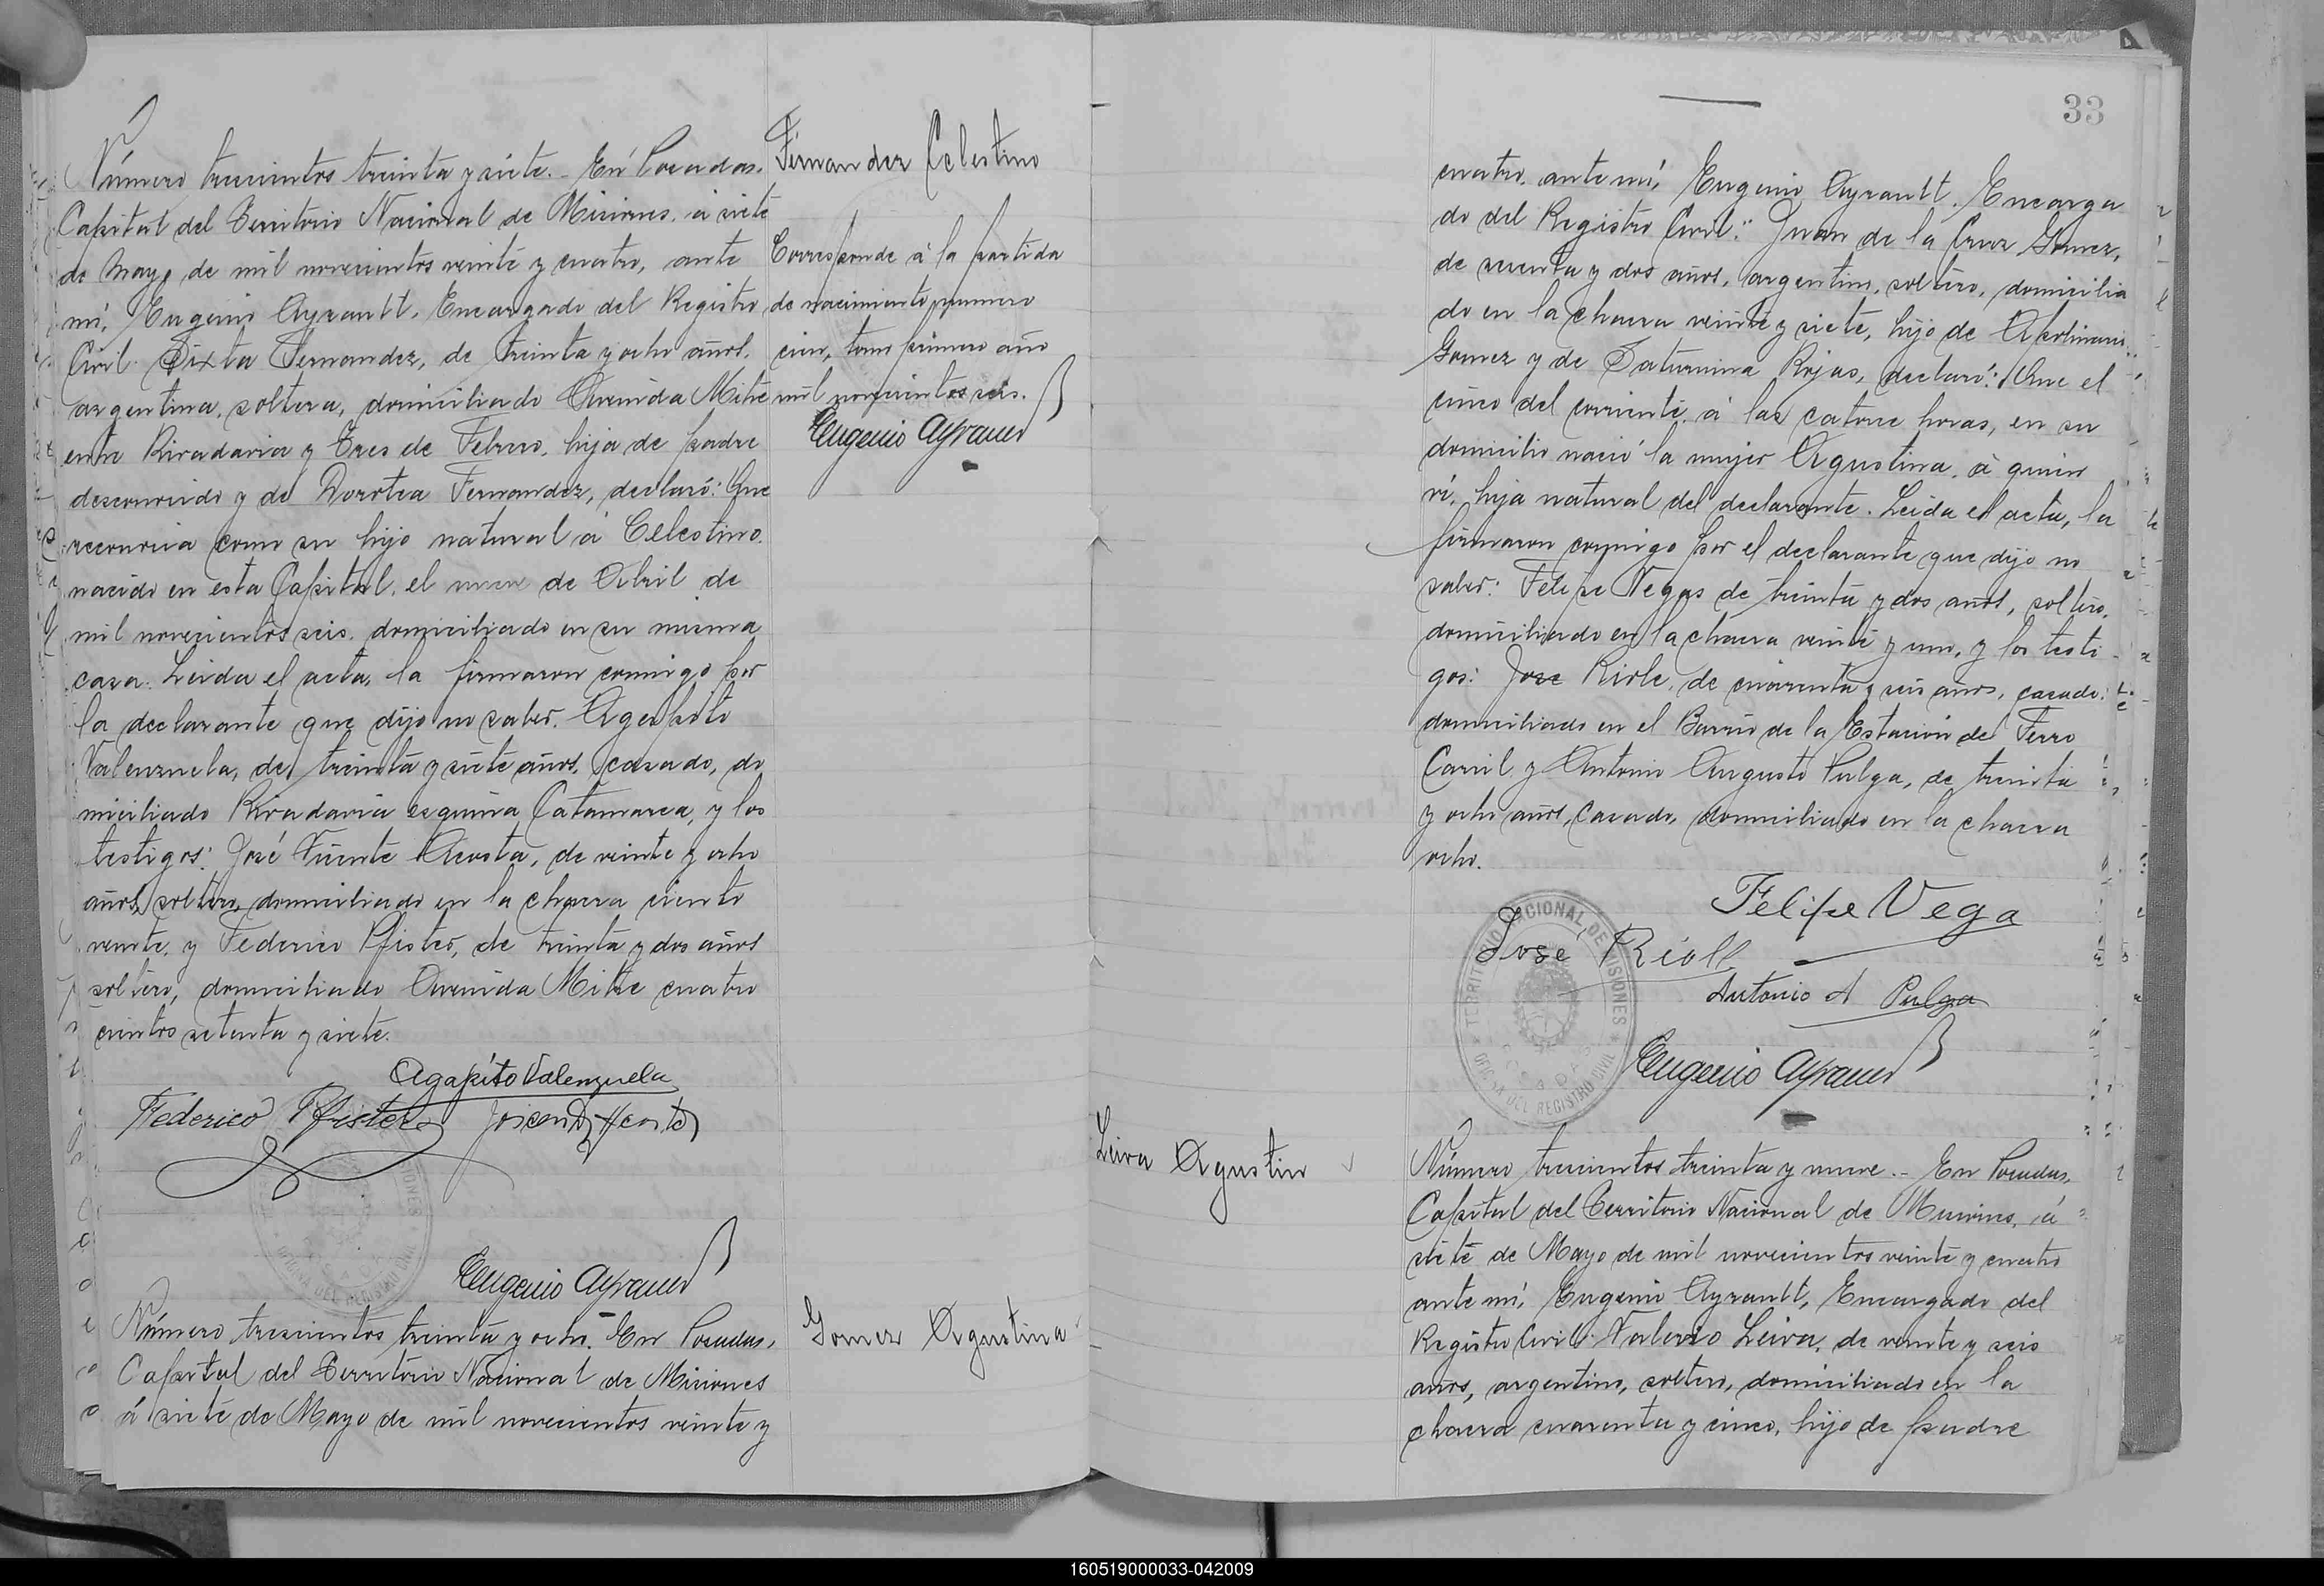 Número trescientos treinta y siete. - En Posadas,
Capital del Territorio Nacional de Misiones, á siete
de Mayo de mil novecientos veinte y cuatro, ante
mí, Eugenio Ayrault, Encargado del Registro
Civil: Sixta Fernandez, de treinta y ocho años,
argentina, soltera, domiciliado Avenida Mitre
entre Rivadavia y Tres de Febrero, hija de padre
desconocido y de Dorotea Fernandez, declaró: Que
reconocia como su hijo natural á Celestino,
nacido en esta Capital, el nueve de Abril de
mil novecientos seis, domiciliado en su misma
casa. Leida el acta, la firmaron conmigo por
la declarante que dijo no saber. Agapito
Valenzuela, de treinta y siete años, casado, do
miciliado Rivadavia esquina Catamarca, y los
testigos: José Vicente Acosta, de veinte y ocho
años, soltero, domiciliado en la chacra ciento
veinte, y Federico Pfister, de treinta y dos años
soltero, domiciliado Avenida Mitre cuatro
cientos setenta y siete.
Agapito Valenzuela
Federico Pfister
Eugenio Ayrault
Fernandez Celestino
Corresponde á la partida
de nacimiento número
cien, tomo primero año
mil novecientos seis.
Eugenio Ayrault
Número trescientos treinta y ocho. En Posadas,
Capital del Territorio Nacional de Misiones
á siete de Mayo de mil novecientos veinte y
Gomez Agustina
33
cuatro, ante mí, Eugenio Ayrault, Encarga
do del Registro Civil: Juan de la Cruz Gomez,
de sesenta y dos años, argentino, soltero, domicilia
do en la chacra veinte y siete, hijo de Apolinario
Gomez y de Saturnina Rojas, declaró: Que el
cinco del corriente á las catorce horas, en su
domicilio nació la mujer Agustina, á quien
ví, hija natural del declarante. Leida el acta, la
firmaron conmigo por el declarante que dijo no
saber: Felipe Vegas de treinta y dos años, soltero,
domiciliado en la chacra veinte y uno, y los testi
gos: Jose Riole, de cuarenta y seis años, casado,
domiciliado en el Barrio de la Estación del Ferro
Carril y Antonio Augusto Pulga, de treinta
y ocho años, casado, domiciliado en la chacra
ocho.
Felipe Vega
José Rioll
Antonio A Pulga
Eugenio Ayrault
TERRITORIO NACIONAL DE MISIONES
OFICINA DEL REGISTRO CIVIL
Leiva Agustin
Número trescientos treinta y nueve. - En Posadas,
Capital del Territorio Nacional de Misiones, á
siete de Mayo de mil novecientos veinte y cuatro
ante mí, Eugenio Ayrault, Encargado del
Registro Civil: Valerio Leiva, de veinte y seis
años, argentino, soltero, domiciliado en la
chacra cuarenta y cinco, hijo de padre
160519000033-042009